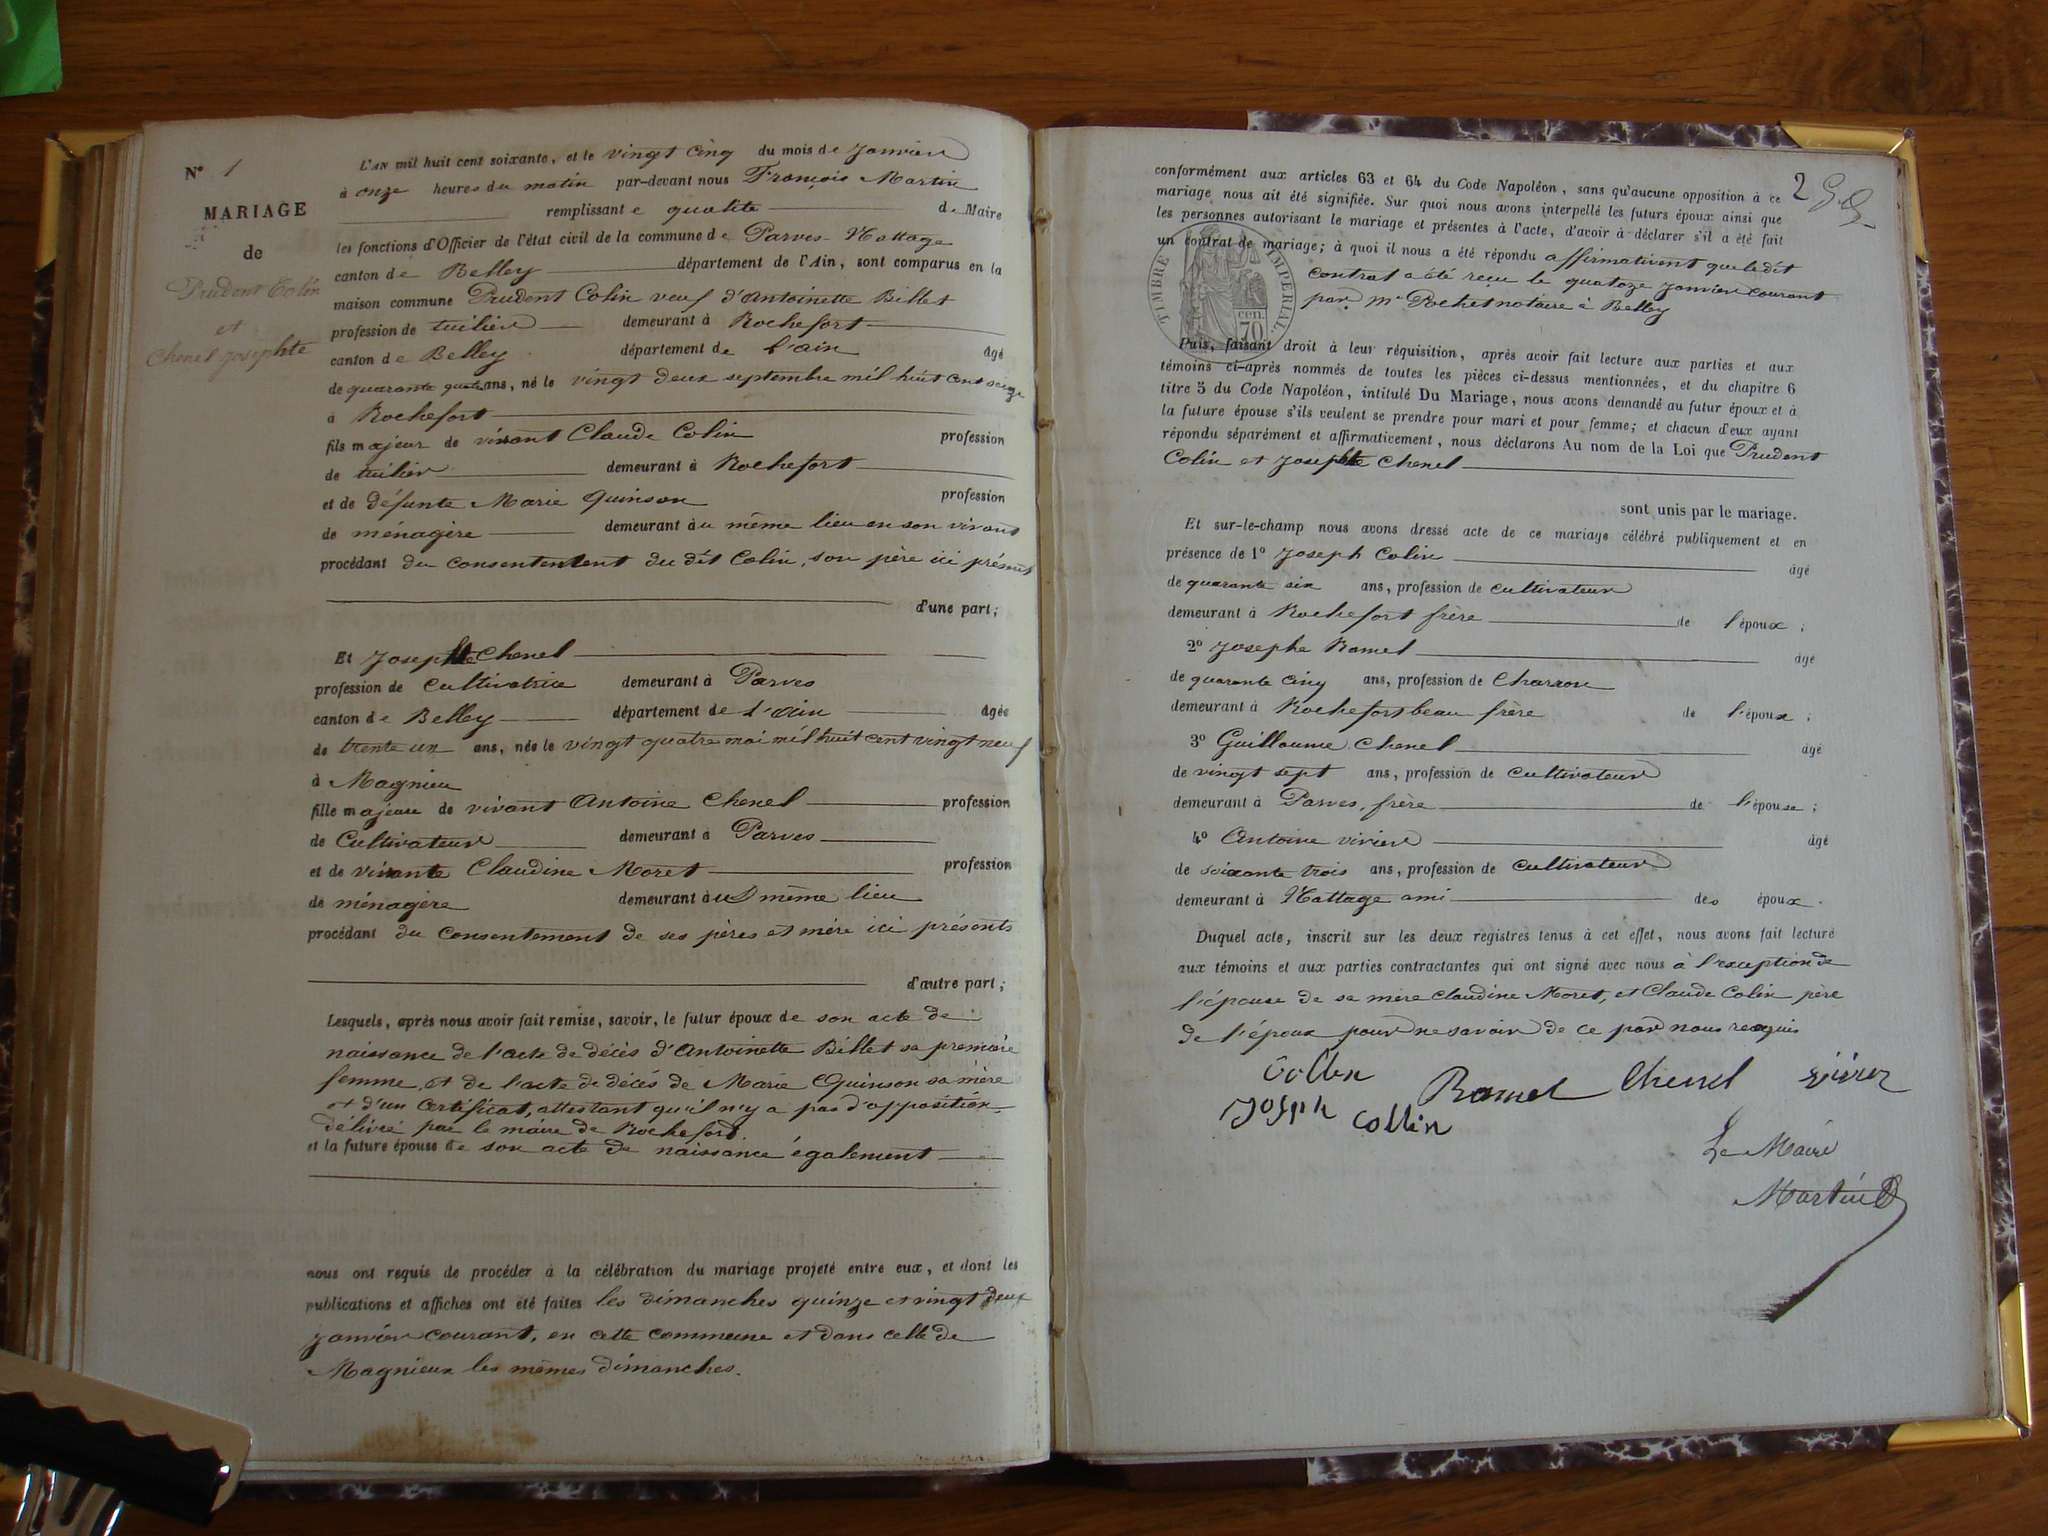 N° 1
MARIAGE
de
Prudent Colin
et
Chenel Josephte
L'AN mil huit cent soixante, et le vingt cinq du mois de Janvier
à onze heures du matin par-devant nous François Martin
remplissant e qualité de Maire
les fonctions d'Officier de l'état civil de la commune de Parves-Nattage
canton de Belley département de l'Ain, sont comparus en la
maison commune Prudent Colin veuf d'Antoinette Billet
profession de tuilier demeurant à Rochefort
canton de Belley département de l'ain âgé
de quarante quatre ans, né le vingt deux septembre mil huit cent seize
à Rochefort
fils majeur de vivant Claude Colin profession
de tuilier demeurant à Rochefort
et de défunte Marie Quinson profession
de ménagère demeurant au même lieu en son vivant
procédant du consentement du dit Colin, son père ici présent
d'une part;
Et Josephte Chenel
profession de Cultivatrice demeurant à Parves
canton de Belley département de l'ain âgée
de trente un ans, née le vingt quatre mai mil huit cent vingt neuf
à Magnieu
fille majeure de vivant Antoine Chenel profession
de Cultivateur demeurant à Parves
et de vivante Claudine Moret profession
de ménagère demeurant au même lieu
procédant du consentement de ses pères et mère ici présents
d'autre part;
Lesquels, après nous avoir fait remise, savoir, le futur époux de son acte de
naissance de l'acte de décès d'Antoinette Billet sa première
femme, et de l'acte de décès de Marie Quinson sa mère
et d'un certificat, attestant qu'il n'y a pas d'opposition
délivré par le maire de Rochefort.
et la future épouse de son acte de naissance également
nous ont requis de procéder à la célébration du mariage projeté entre eux, et dont les
publications et affiches ont été faites les dimanches quinze et vingt deux
janvier courant, en cette commune et dans celle de
Magnieux les mêmes dimanches.
2
conformément aux articles 63 et 64 du Code Napoléon, sans qu'aucune opposition à ce
mariage nous ait été signifiée. Sur quoi nous avons interpellé les futurs époux ainsi que
les personnes autorisant le mariage et présentes à l'acte, d'avoir à déclarer s'il a été fait
un contrat de mariage; à quoi il nous a été répondu affirmativent que ledit
contrat a été reçu le quatoze janvier courant
par Mr Pochet notaire à Belley
TIMBRE IMPERIAL
70 cen.
Puis, faisant droit à leur réquisition, après avoir fait lecture aux parties et aux
témoins ci-après nommés de toutes les pièces ci-dessus mentionnées, et du chapitre 6
titre 5 du Code Napoléon, intitulé Du Mariage, nous avons demandé au futur époux et à
la future épouse s'ils veulent se prendre pour mari et pour femme; et chacun d'eux ayant
répondu séparément et affirmativement, nous déclarons Au nom de la Loi que Prudent
Colin et Josephte Chenel
sont unis par le mariage.
Et sur-le-champ nous avons dressé acte de ce mariage célébré publiquement et en
présence de 1° Joseph Colin âgé
de quarante six ans, profession de cultivateur
demeurant à Rochefort frère de l'époux;
2° Josephe Ramel âgé
de quarante cinq ans, profession de Charron
demeurant à Rochefort beau frère de l'époux;
3° Guillaume Chenel âgé
de vingt sept ans, profession de cultivateur
demeurant à Parves, frère de l'épouse;
4° Antoine vivier âgé
de soixante trois ans, profession de cultivateur
demeurant à Nattage ami des époux.
Duquel acte, inscrit sur les deux registres tenus à cet effet, nous avons fait lecture
aux témoins et aux parties contractantes qui ont signé avec nous à l'exception de
l'épouse de sa mère Claudine Moret, et Claude Colin père
de l'époux pour ne savoir de ce par nous requis
Collin Ramel Chenel vivier
Joseph Collin
Le Maire
Martin